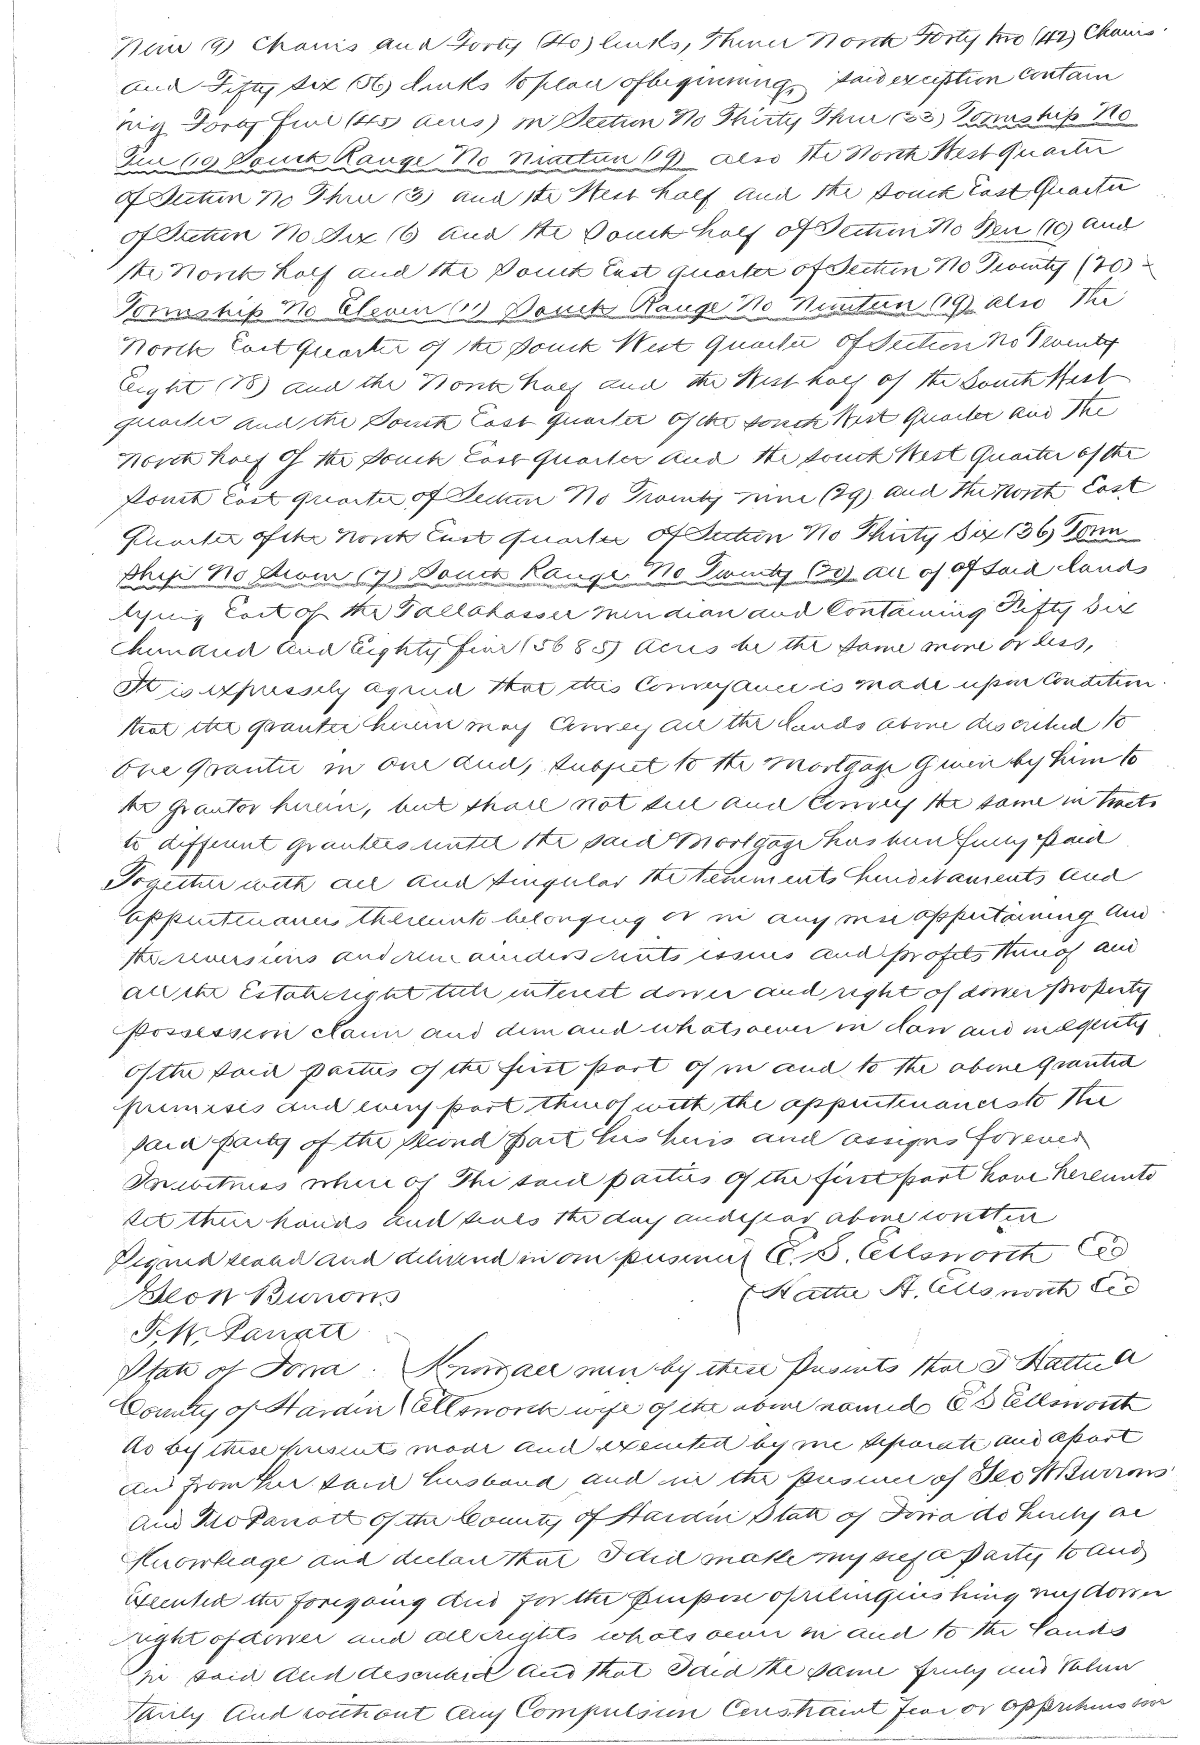 Nine (9) Chains and Forty (40) links, Thence North Forty two (42) Chains
and Fifty Six (56) links to place of beginning, said exception contain
ing Forty five (45) acres) in Section No Thirty Three (33) Township No
Ten (10) South Range No Nineteen (19) also the North West Quarter
of Section No Three (3) and the West half and the South East Quarter
of Section No Six (6) and the South half of Section No Ten (10) and
the North half and the South East quarter of Section No Twenty (20)
Township No Eleven (11) South Range No Nineteen (19) also the
North East Quarter of the South West Quarter of Section No Twenty
Eight (28) and the North half and the West half of the South West
quarter and the South East Quarter of the South West Quarter and the
North half of the South East quarter and the South West Quarter of the
South East quarter of Section No Twenty nine (29) and the North East
Quarter of the North East quarter of Section No Thirty Six (36) Town
ship No Seven (7) South Range No Twenty (20) all of of said lands
lying East of the Tallahasser meridian and Containing Fifty Six
hundred and Eighty five (5685) acres be the same more or less,
It is expressely agreed that this Conveyance is made upon Condition
that the grantee herein may Convey all the lands above described to
one grantee in one deed, subject to the mortgage given by him to
the grantor herein, but shall not sell and convey the same in tracts
to different grantees until the said Mortgage has been fully paid
Together with all and singular the tenements hereditaments and
appurtenances thereunto belonging or in any wise appertaining and
the reversions and remainders rents issues and profits thereof and
all the Estate right title interest dower and right of dower property
possession claim and demand whatsoever in law and in equity
of the said parties of the first part of in and to the above granted
premises and every part thereof with the appurtenances to the
said party of the second part his heirs and assigns forever
In witness where of The said parties of the first part have hereunto
set their hands and seals the day and year above written
Signed sealed and delivered in our presence E. S. Ellsworth
Hattie A. Ellsworth
State of Iowa Know all men by these presents that I Hattie A
County of Hardin Ellsworth wife of the above named E S Ellsworth
do by these presents made and executed by me separate and apart
and from her said husband and in the presence of Geo W Burrows
and Parrott of the County of Hardin State of Iowa do hereby ac
knowledge and declare that I did make my self a party to and
executed the foregoing deed for the purpose of relinquishing my dower
right of dower and all rights whatsoever in and to the lands
in said deed described and that I did the same freely and Volun
tarily and without any Compulsion Constraint fear or apprehension